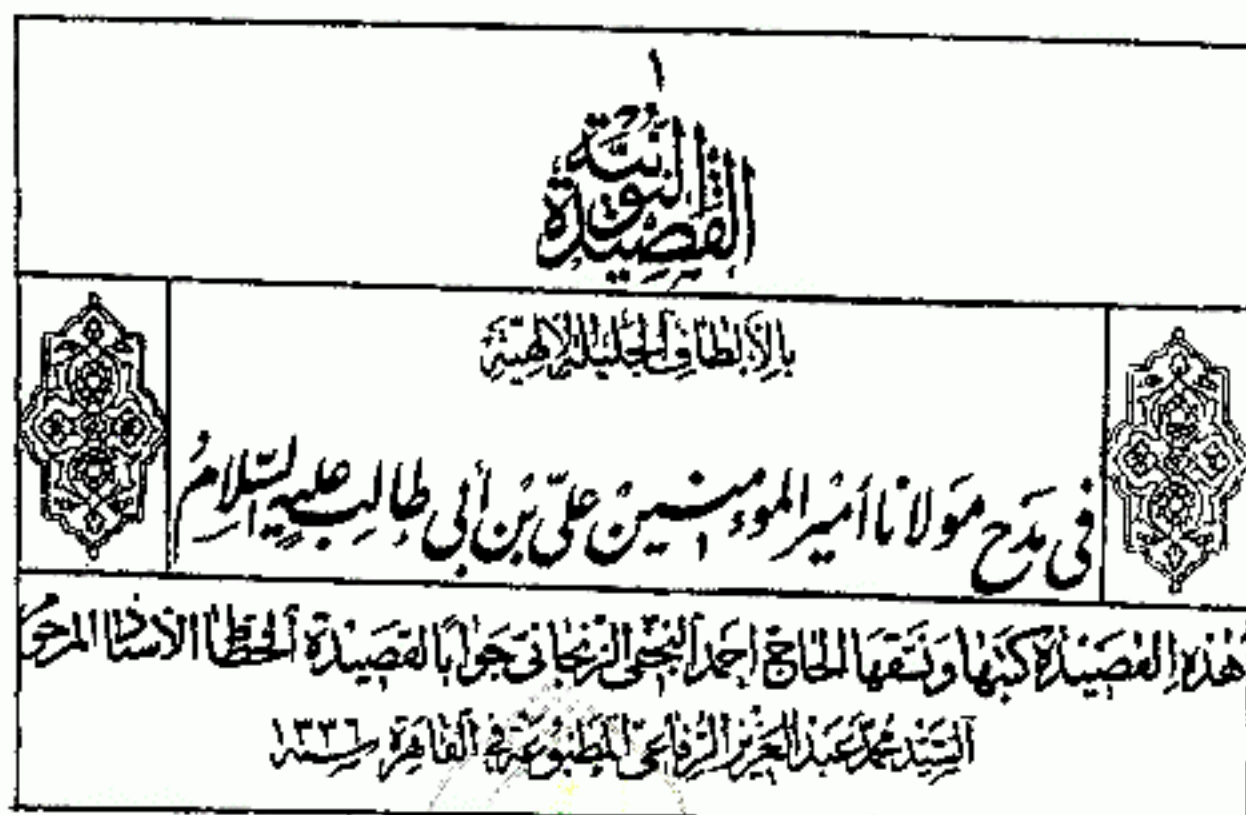 ١
القَصِيدَةُ النُّونِيَّةُ
بِالأَلْطَافِ الجَلِيلَةِ الإِلٰهِيَّةِ
فى مَدَح مَولانا أَمير المؤمنين علىّ بن أبى طالِب عليه السَّلامُ
هٰذِهِ القَصِيدَةُ كَتَبَهَا وَنَسَّقَهَا الحَاجّ احمد النجفى الزنجانى جَوابًا لقَصِيدَة الخطّاط الأستاذ المرحوم
السَّيِّد محمّد عَبد العَزيز الرفاعى المطبُوعَة فى القاهرة سنة ١٣٣٦